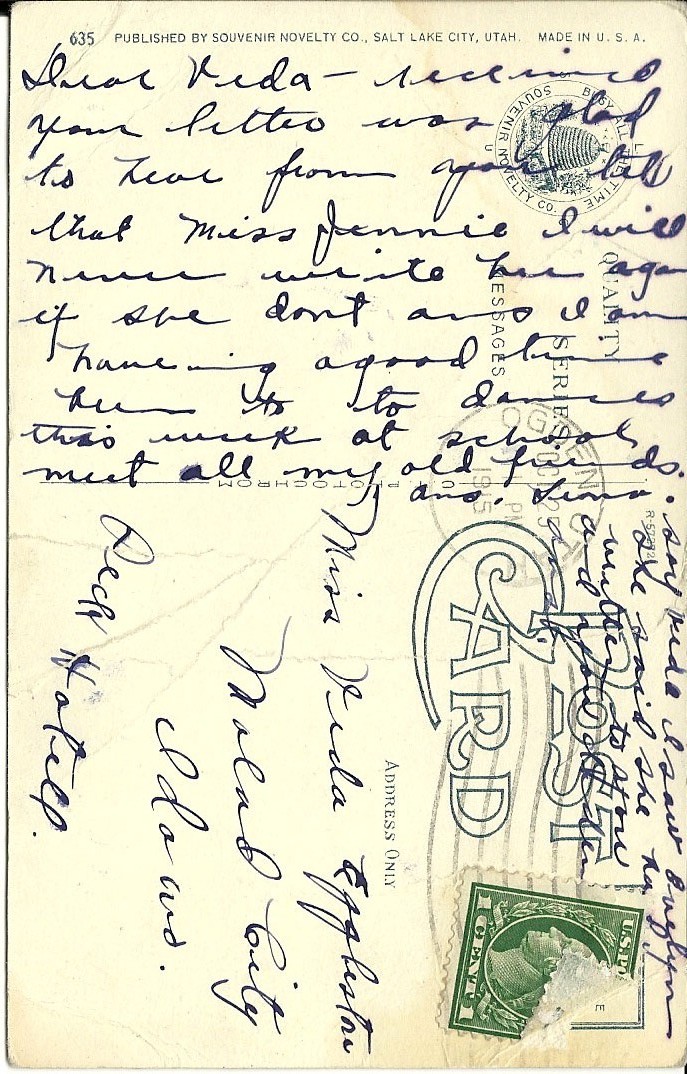 635 PUBLISHED BY SOUVENIR NOVELTY CO., SALT LAKE CITY, UTAH. MADE IN U. S. A.
Dear Veda – received
your letter was glad
to hear from you tell
that Miss Jennie I will
never write her again
if she dont ans I am
haveing a good time
been to to dances
this week at school
meet all my old friends.
ans. Leona
say Veda I saw
she said she ha
written to you
and you
ans
BUSY ALL THE TIME
SOUVENIR NOVELTY CO.
QUALITY
SERIES
MESSAGES
OGDEN UTAH
OCT 25
PM
1915
PHOTOCHROM
POST
CARD
ADDRESS ONLY
Miss Veda Eggleston
Malad City
Idaho.
Peck Hotell.
U.S.POS
1 CENT 1